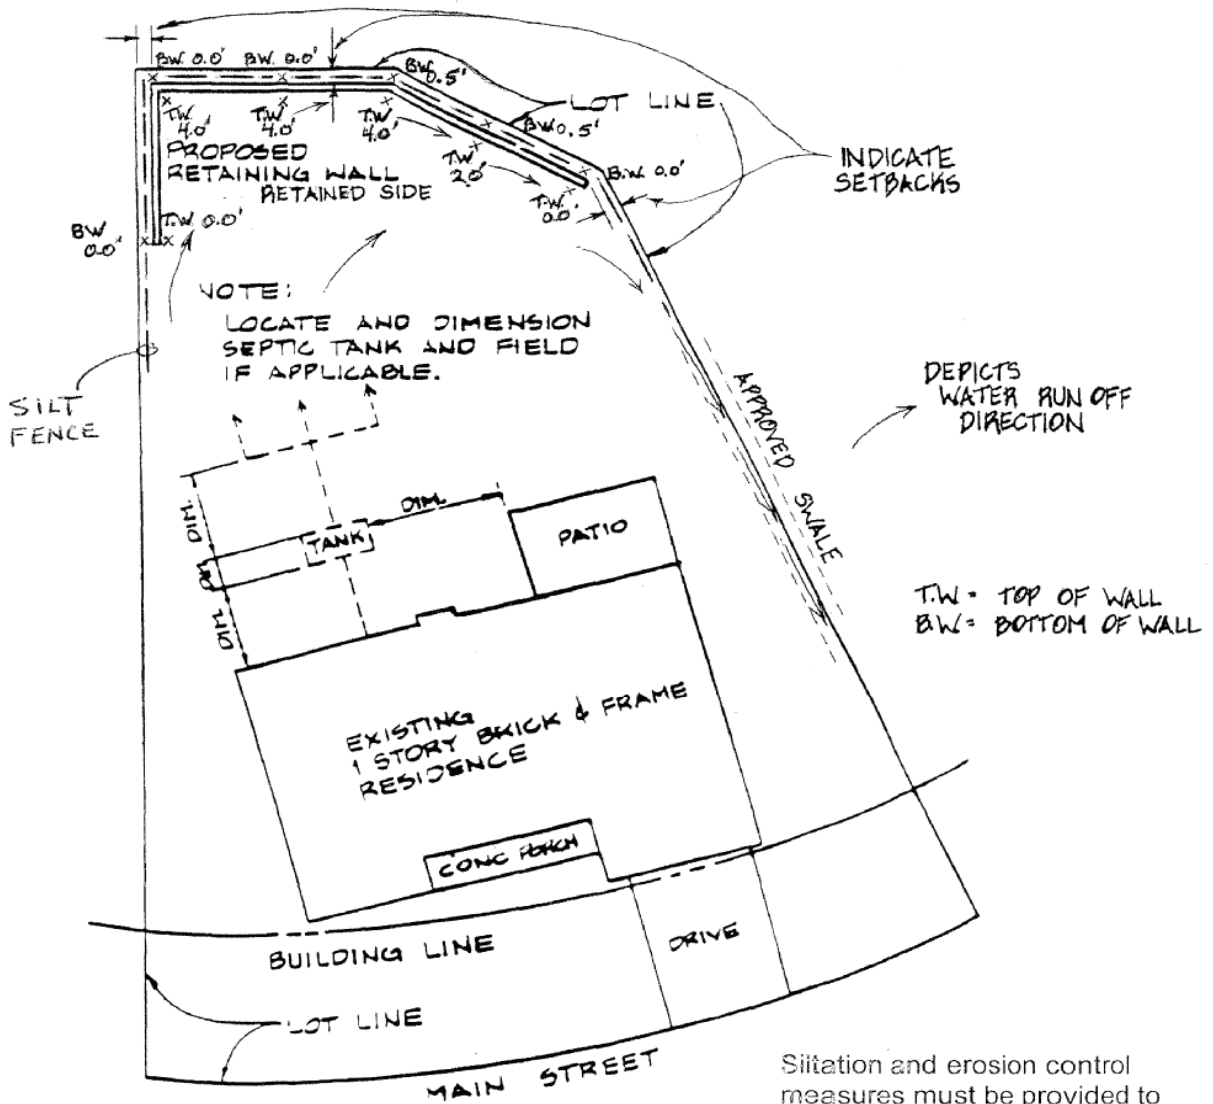 B.W. 0.0'
B.W. 0.0'
B.W.
0.5'
LOT LINE
B.W. 0.5'
T.W.
4.0'
T.W.
4.0'
T.W.
4.0'
PROPOSED
RETAINING WALL
RETAINED SIDE
T.W.
2.0'
B.W. 0.0'
T.W.
0.0'
INDICATE
SETBACKS
T.W. 0.0'
B.W.
0.0'
NOTE:
LOCATE AND DIMENSION
SEPTIC TANK AND FIELD
IF APPLICABLE.
SILT
FENCE
APPROVED SWALE
DEPICTS
WATER RUN OFF
DIRECTION
DIM.
DIM.
TANK
PATIO
DIM.
DIM.
T.W. = TOP OF WALL
B.W. = BOTTOM OF WALL
EXISTING
1 STORY BRICK & FRAME
RESIDENCE
CONC PORCH
BUILDING LINE
DRIVE
LOT LINE
MAIN STREET
Siltation and erosion control
measures must be provided to